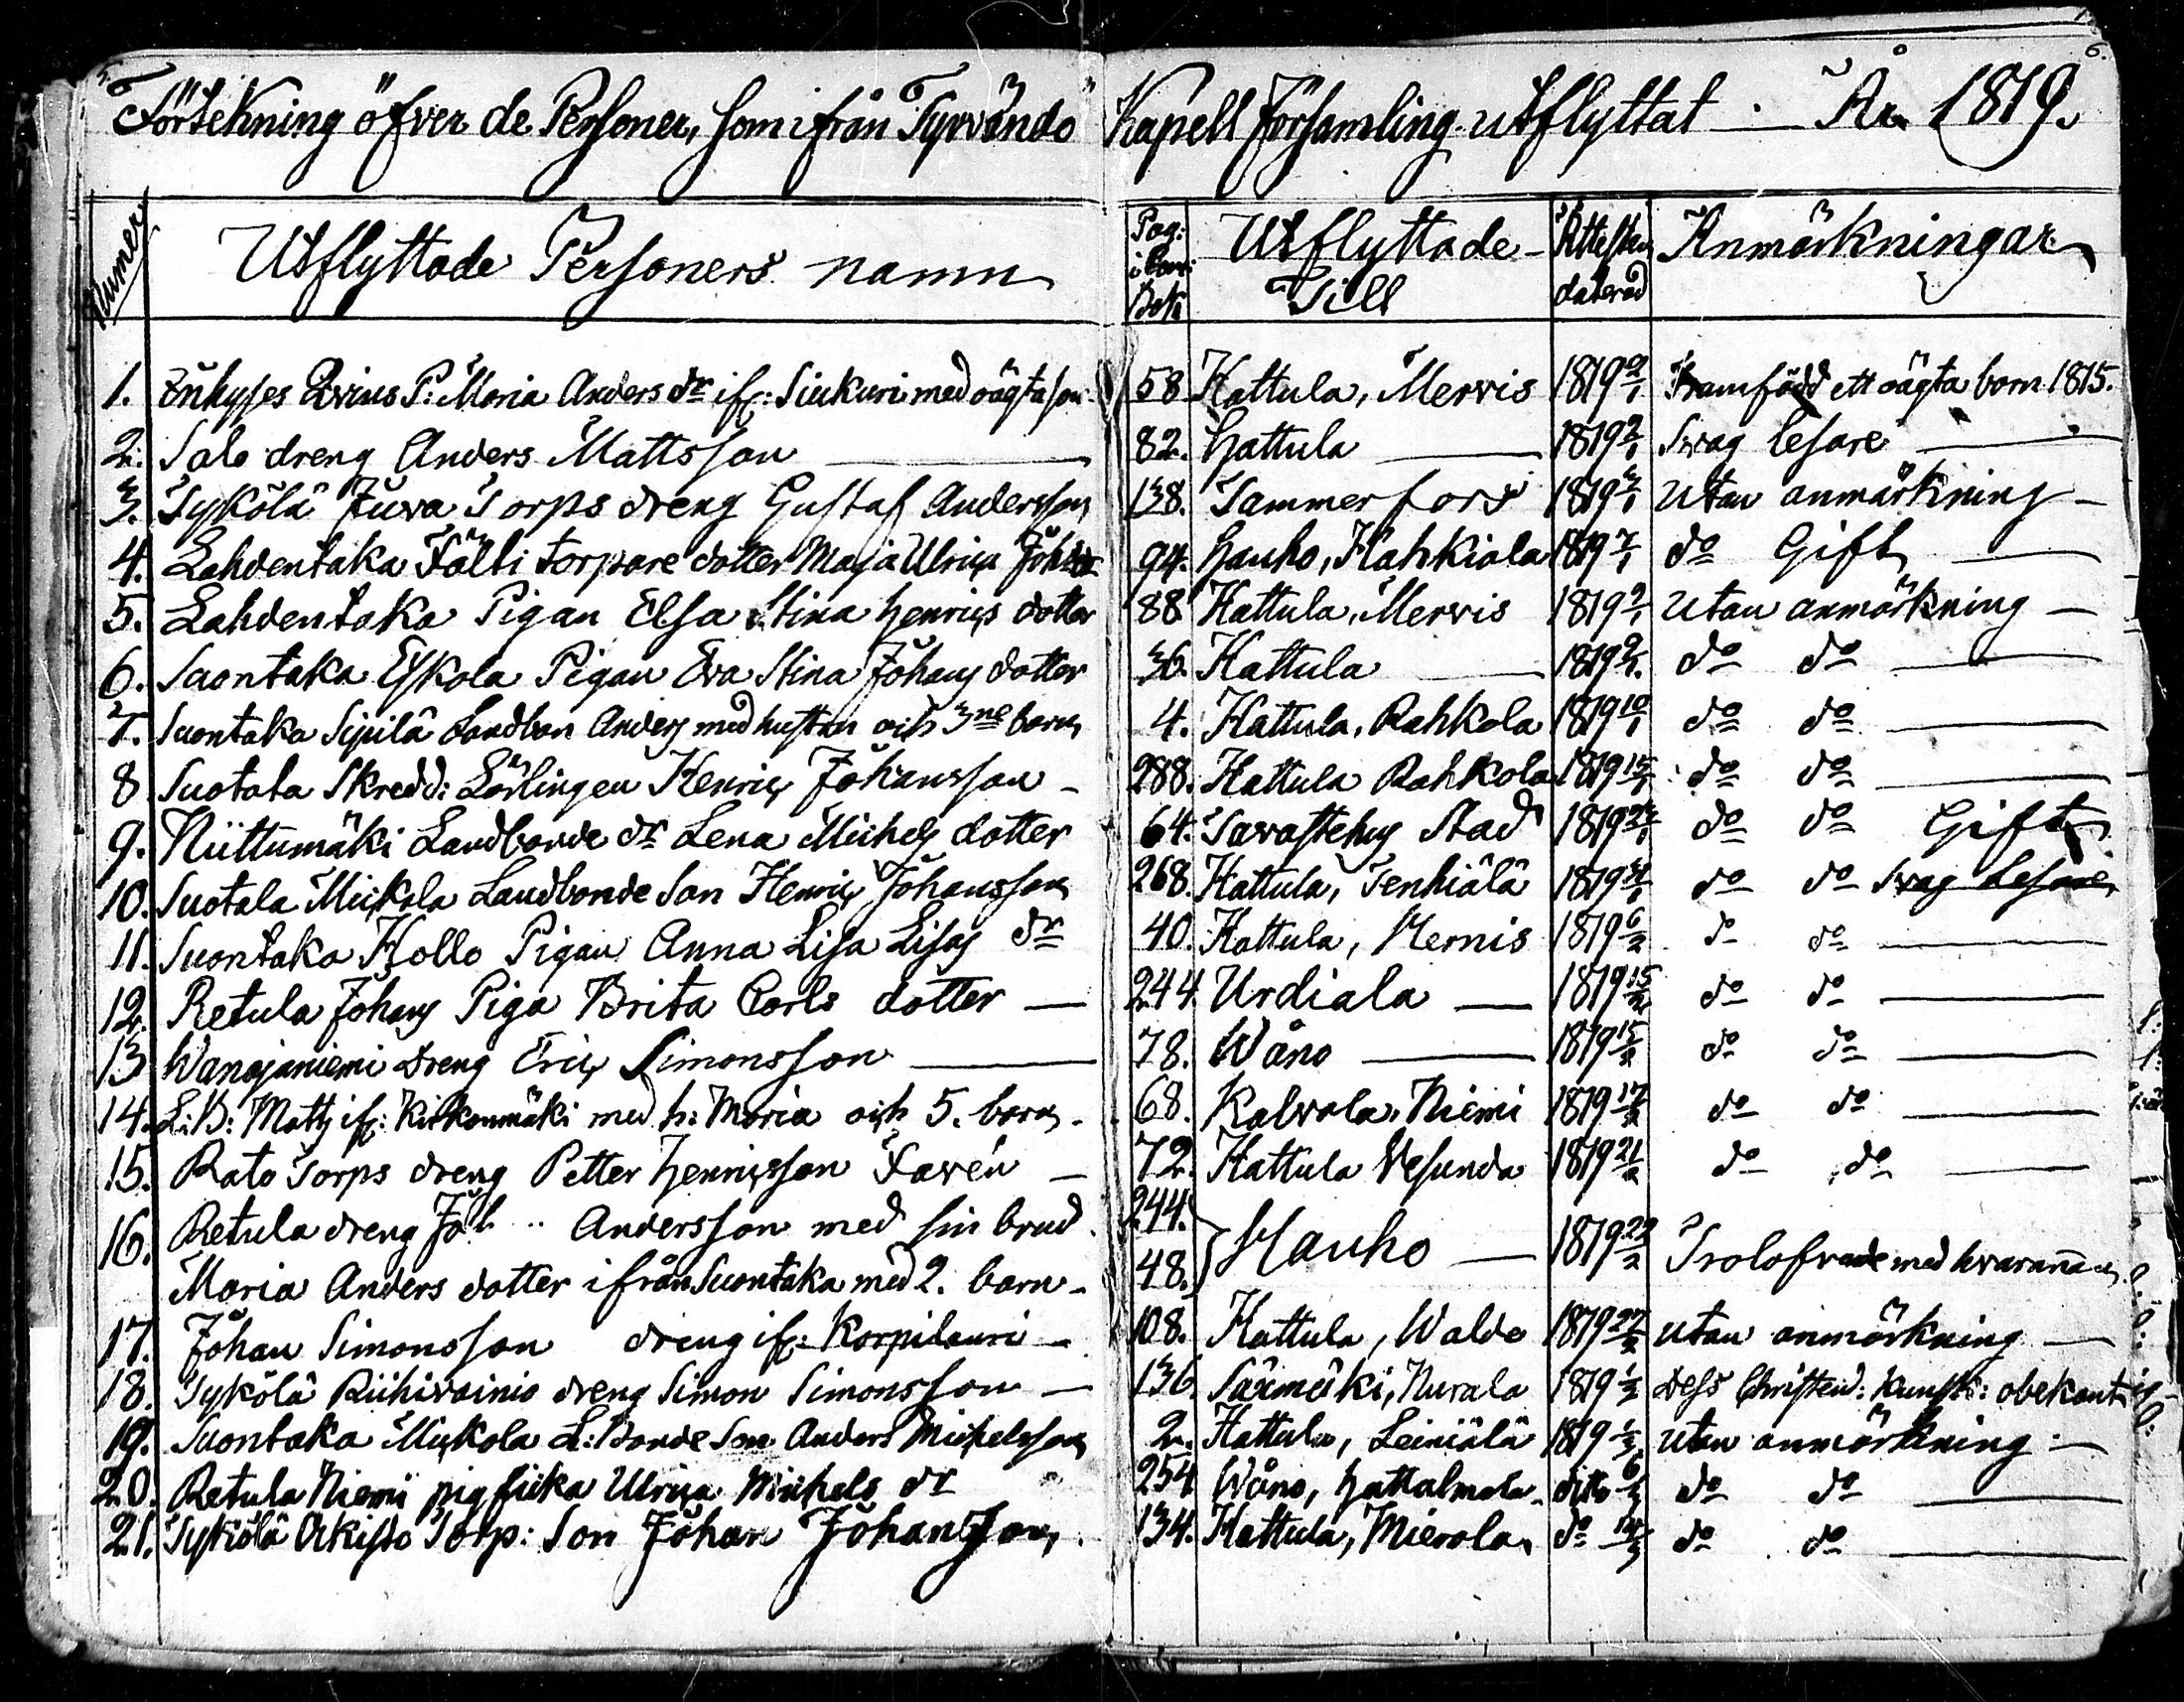 5. 6.
Förtekning öfver de Personer, som ifrån Tyrvändö Kapell Församling utflyttat — År 1819.
Numer Utflyttade Personers namn Pag: i Com: Bok Utflyttade Till Attesten daterad Anmärkningar
1. Inhyses P: Maria Anders dr ifr: Siukuri med oägta son 58 Hattula, Mervis 1819 2/1 Framfödd ett oägta barn 1815.
2. Salo dreng Anders Mattsson — 82. Hattula — 1819 2/1 Svag lesare —
3. Sykölä Juva Torps dreng Gustaf Andersson 138. Tammerfors 1819 3/1 Utan anmärkning —
4. Lahdentaka Fälti torpare dotter Maja Ulrica Joh: dr 94. Hauho, Hahkiala 1819 7/1 do Gift —
5. Lahdentaka Pigan Elsa Stina Henrics dotter 88 Hattula, Mervis 1819 9/1 Utan anmärkning —
6. Suontaka Eskola Pigan Eva Stina Johans dotter 36. Hattula — 1819 9/1. do do —
7. Suontaka Sipilä Landbon Anders med hustru och 3ne barn 4. Hattula, Rahkola 1819 10/1 do do —
8 Suotala Skredd: Lärlingen Henric Johansson — 288. Hattula Rahkola 1819 15/1 do do —
9. Niittumäki Landbonde dr Lena Michels dotter 64. Tavastehus Stad 1819 24/1 do do Gift
10. Suotala Mickola Landbonde Son Henric Johansson 268. Hattula, Tenhiälä 1819 31/1 do do Svag Lesare
11. Suontaka Hollo Pigan Anna Lisa Lisas dr 40. Hattula, Mernis 1819 6/2 do do —
12. Retula Johans Piga Brita Carls dotter — 244 Urdiala — 1819 15/2 do do —
13 Wanajaniemi dreng Eric Simonsson — 78. Wåno — 1819 15/2 do do —
14. L:B: Matts ifr: Kirkonmäki med h: Maria och 5. barn. 68. Kalvola, Niemi 1819 17/2 do do —
15. Rato Torps dreng Petter Henricsson Favén — 72. Hattula Vesunda 1819 21/2 do do —
16. Retula dreng Joh .. Andersson med sin brud 244. Hauho — 1819 22/2 Trolofvade med hvarannan
Maria Anders dotter ifrån Suontaka med 2. barn — 48.
17. Johan Simonsson dreng ifr: Korpilauri — 108. Hattula, Waldo 1819 27/2 Utan anmärkning —
18. Sykölä Riihivainio dreng Simon Simonsson — 136. Säxmäki, Nurala 1819 1/3 dess Christend: kunsk: obekant
19. Suontaka Mickola L:Bonde Son Anders Michelsson 2. Hattula, Leiniälä 1819 1/3 Utan anmärkning —
20. Retula Niemi pig flicka Ulrica Michels dr 254 Wåno, Hattalmala ditto 6/3 do do —
21. Sykölä Akisto Torp: Son Johan Johansson. 134. Hattula, Mierola do 14/3 do do —